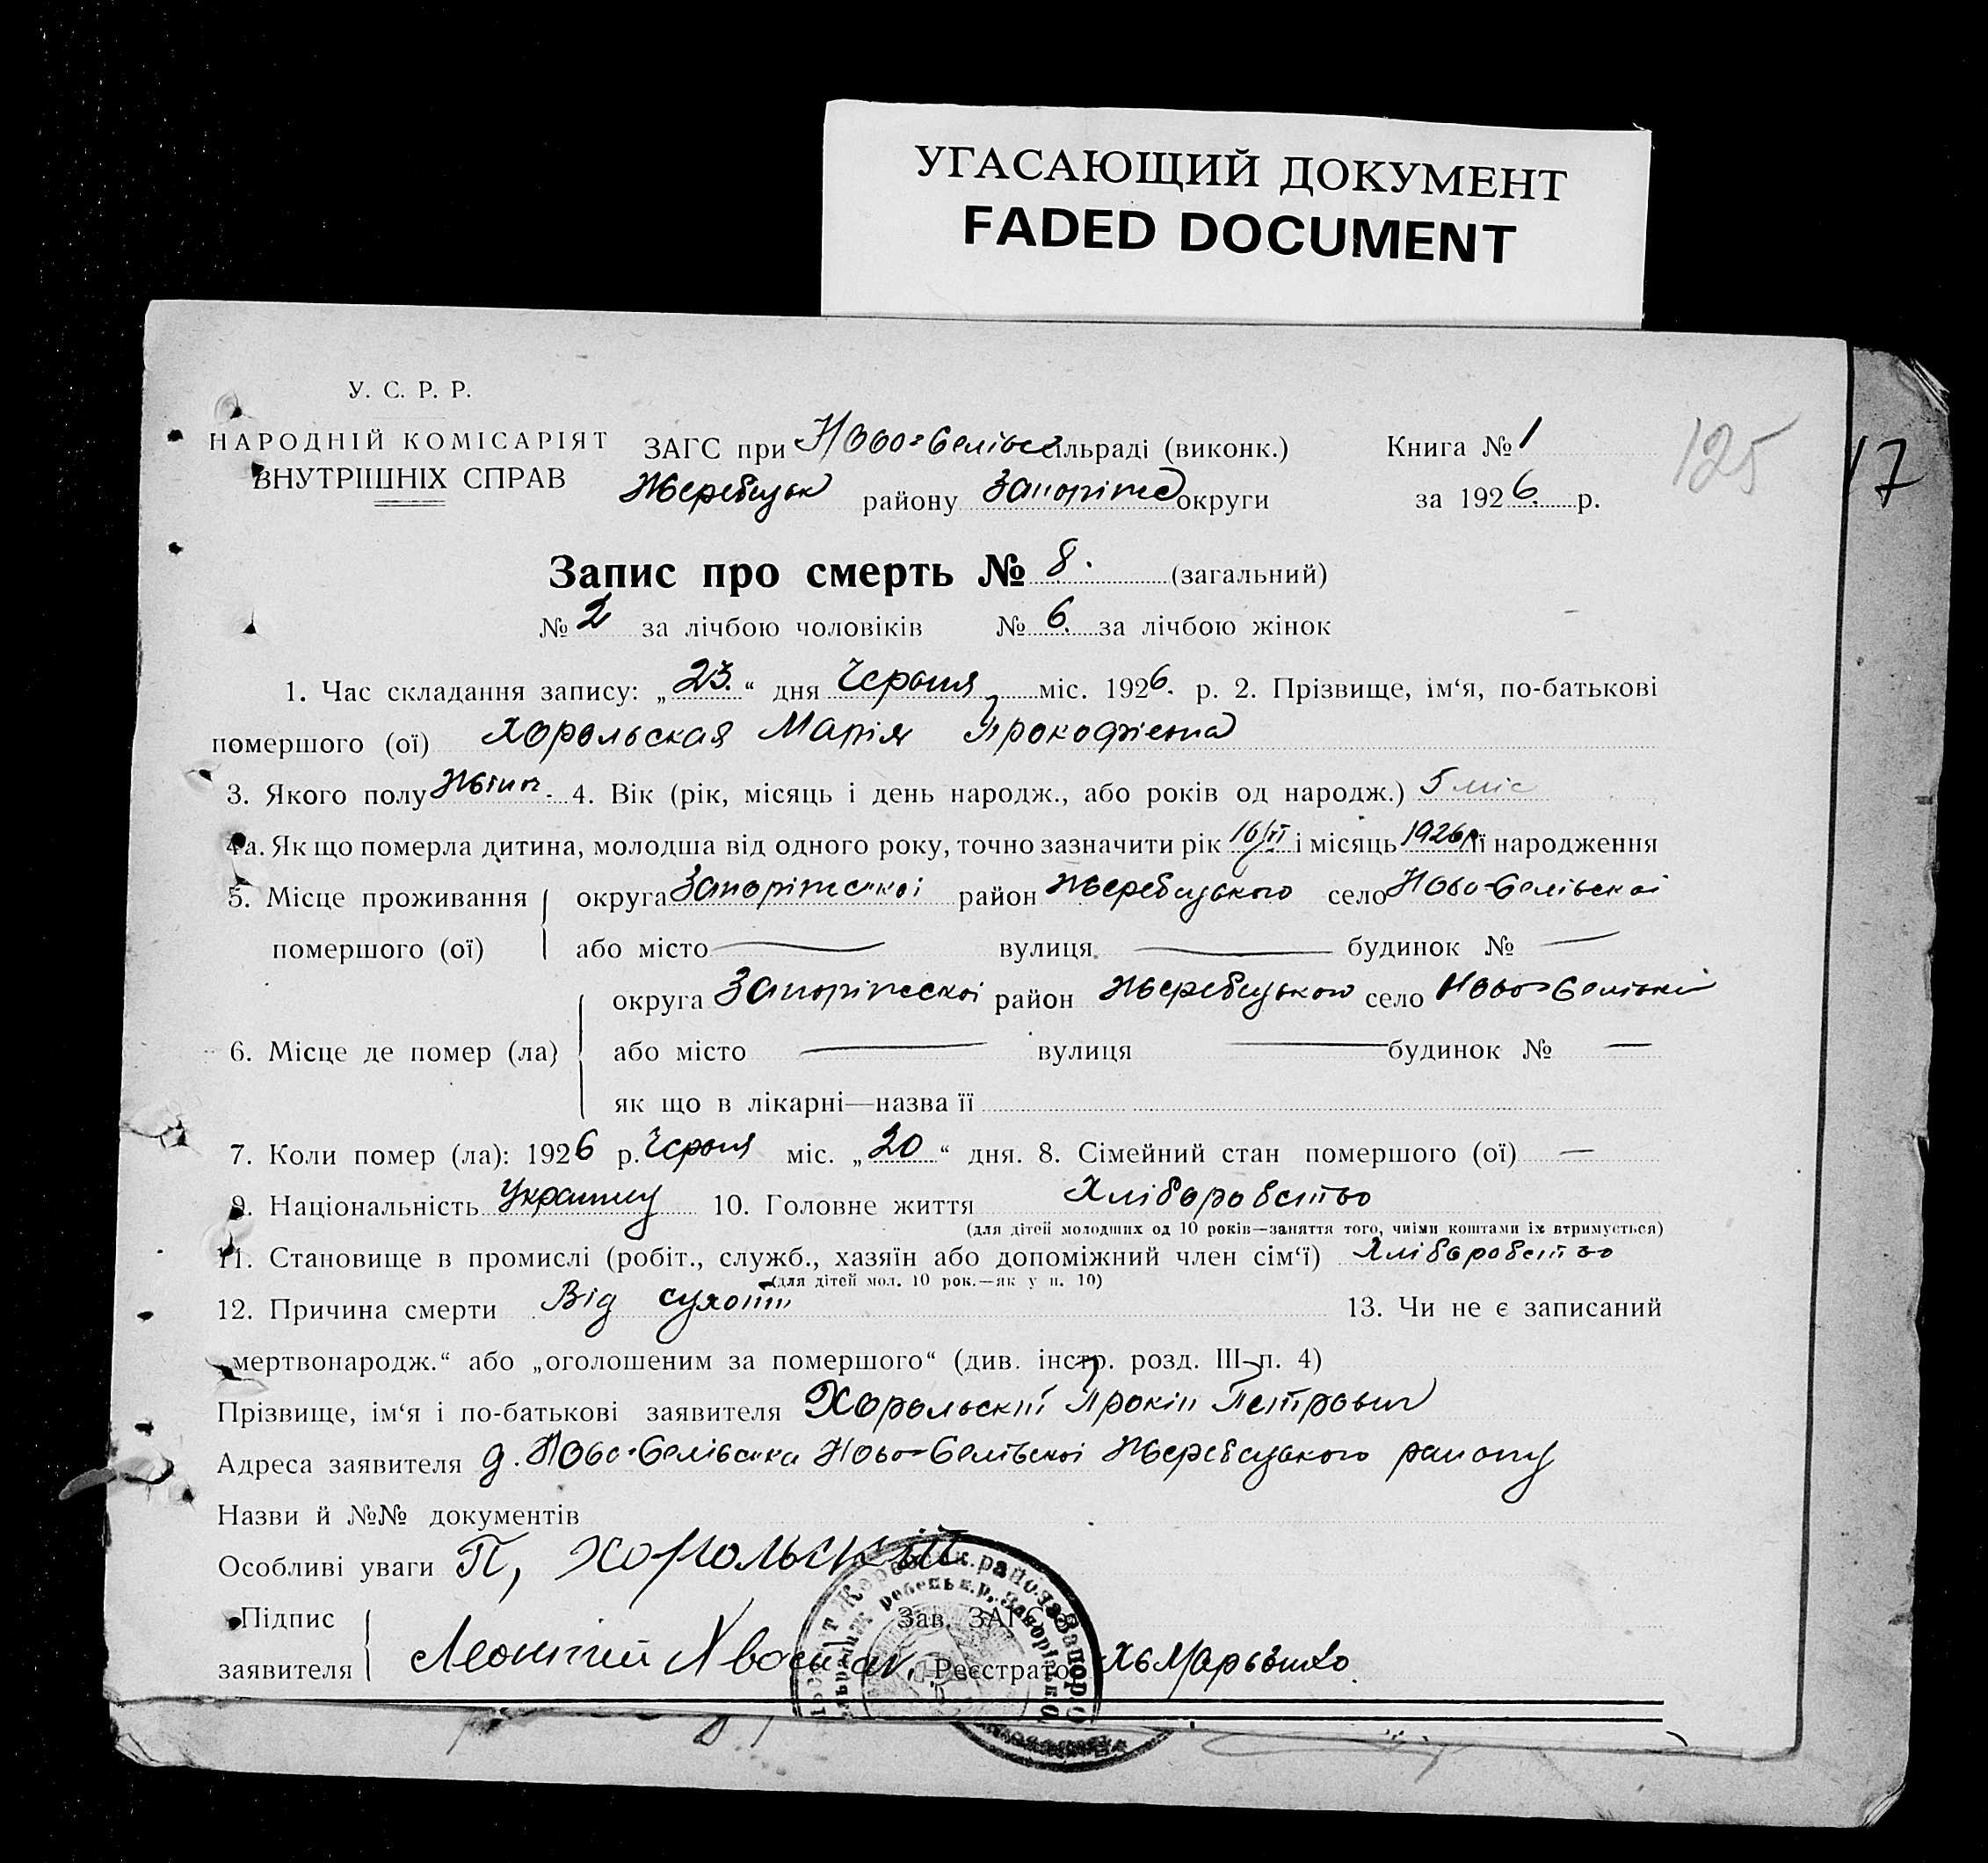 УГАСАЮЩИЙ ДОКУМЕНТ
FADED DOCUMENT
125
17
У. С. Р. Р.
НАРОДНІЙ КОМІСАРІЯТ
ВНУТРІШНІХ СПРАВ
ЗАГС при Ново-Селівс ільраді (виконк.) Книга № 1
Жеребецьк району Запоріжс округи за 1926 р.
Запис про смерть № 8. (загальний)
№ 2 за лічбою чоловіків № 6. за лічбою жінок
1. Час складання запису: „23.“ дня Червня міс. 1926. р. 2. Прізвище, ім‘я, по-батькові
помершого (ої) Хорольская Марія Прокофієвна
3. Якого полу Жіноч. 4. Вік (рік, місяць і день народж., або років од народж.) 5 міс
4а. Як що померла дитина, молодша від одного року, точно зазначити рік і місяць 1926р її народження
5. Місце проживання округа Запоріжської район Жеребецького село Ново-Селівської
помершого (ої) або місто вулиця будинок №
округа Запоріжської район Жеребецького село Ново-Селівкі
6. Місце де помер (ла) або місто вулиця будинок №
як що в лікарні—назва її
7. Коли помер (ла): 1926 р. Червня міс. „20“ дня. 8. Сімейний стан помершого (ої) —
9. Національність 10. Головне життя Хліборобство
(для дітей молодших од 10 років—заняття того, чиїми коштами їх втримується)
11. Становище в промислі (робіт., служб., хазяїн або допоміжний член сім‘ї) Хліборобство
(для дітей мол. 10 рок.—як у п. 10)
12. Причина смерти Від сухот 13. Чи не є записаний
„мертвонародж.“ або „оголошеним за помершого“ (див. інстр. розд. III п. 4)
Прізвище, ім‘я і по-батькові заявителя Хорольский Прокіп Петрович
Адреса заявителя д. Ново-Селівська Ново-Селівської Жеребецького району
Назви й №№ документів
Особливі уваги П, Хорольский
Підпис Зав. ЗАГС
заявителя Леонтій Реєстратор